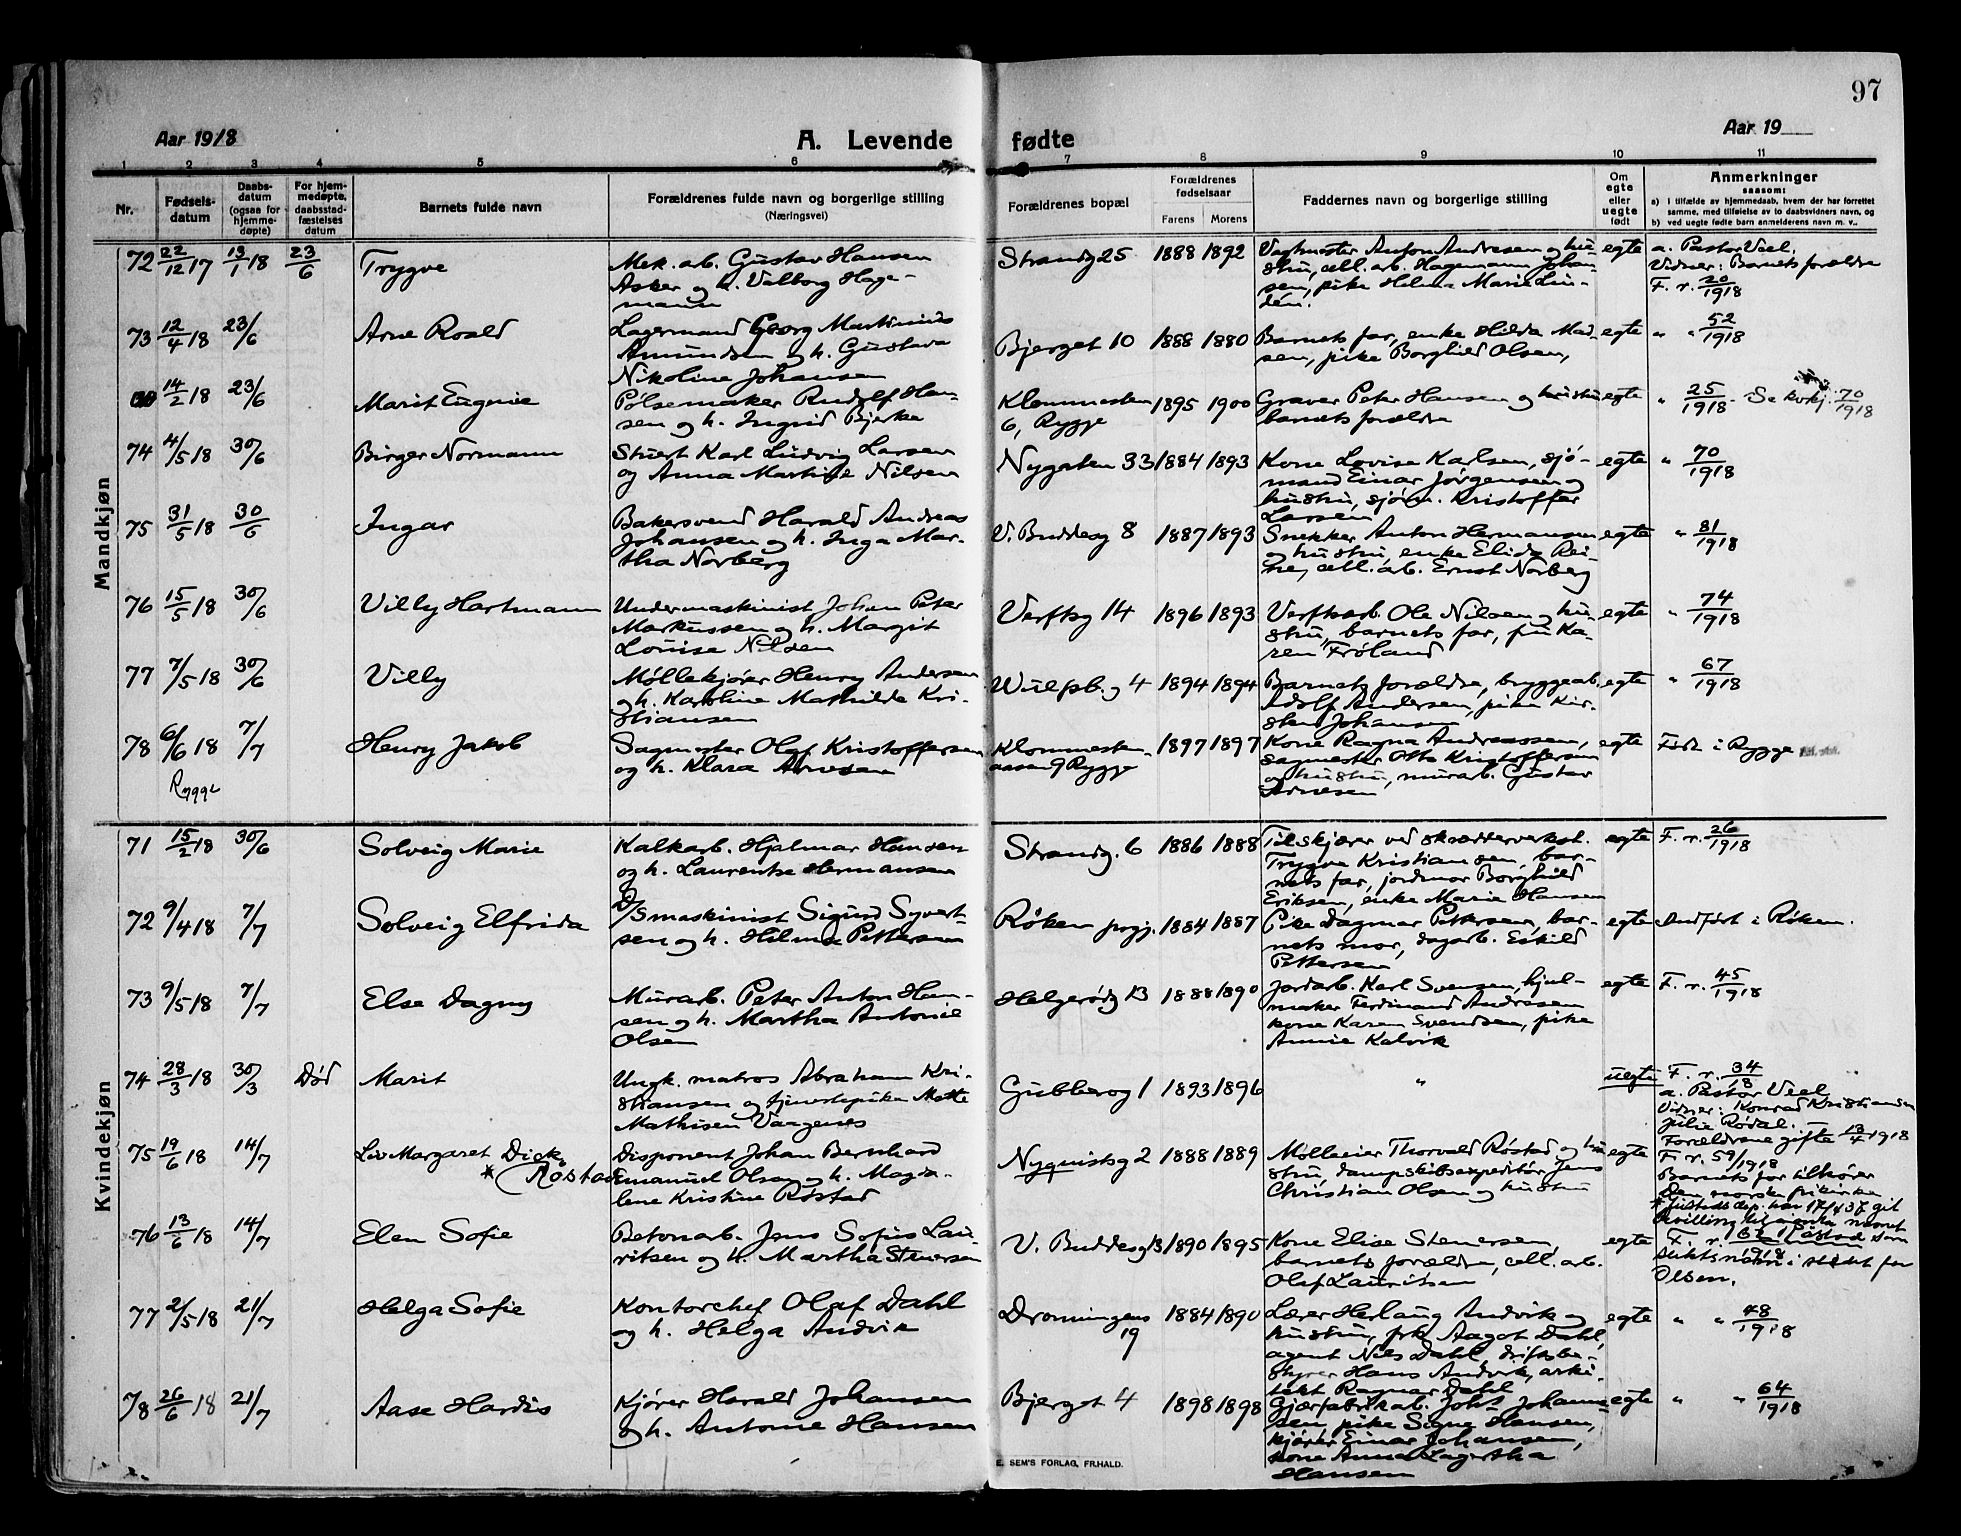 97
Aar 1918
A. Levende fødte
Aar 19
1 2 3 4 5 6 7 8 9 10 11
Nr.
Fødsels-
datum
Daabs-
datum
(ogsaa for
hjemme-
døpte)
For hjem-
medøpte,
daabsstad-
fæstelses
datum
Barnets fulde navn
Forældrenes fulde navn og borgerlige stilling
(Næringsvei)
Forældrenes bopæl
Forældrenes
fødselsaar
Farens Morens
Faddernes navn og borgerlige stilling
Om
egte
eller
uegte
født
Anmerkninger
saasom:
a) i tilfælde av hjemmedaab, hvem der har forrettet
samme, med tilføielse av to daabsvidners navn, og
b) ved uegte fødte barn anmelderens navn m. v..
Mandkjøn
72 22/12 17 13/1 18 23/6 Trygve
Mek. arb. Gustav Hansen
Asker og h. Valborg Hage-
mann
Strandg 25 1888 1892
Vegtmester Anton Andresen og hu-
stru, cell. arb. Hagemann Johan-
sen, pike Helma Marie Lin-
dén.
egte
a. Pastor Veel.
Vidner: Barnets forældre
F. r. 20/1918
73 12/4 18 23/6 Arne Roald
Lagermand Georg Martinius
Amundsen og h. Gustava
Nikoline Johansen
Bjerget 10 1888 1880
Barnets far, enke Hilda Mad-
sen, pike Borghild Olsen,
egte
" " 52/1918
14/2 18 23/6 Marit Eugenie
Pølsemaker Rudolf Han-
sen og h. Ingrid Bjerke
Klommesten
6, Rygge
1895 1900
Graver Peter Hansen og hustru
barnets forældre
egte
" 25/1918 - Se kvkj. 70/1918
74 4/5 18 30/6 Birger Normann
Stuert Karl Ludvig Larsen
og Anna Martine Nilsen
Nygaten 33 1884 1893
Kone Lovise Karlsen, sjø-
mand Einar Jørgensen og
hustru, sjøm. Kristoffer
Larsen
egte
" 70/1918
75 31/5 18 30/6 Ingar
Bakersvend Harald Andreas
Johansen og h. Inga Mar-
tha Norberg
V. Buddesg 8 1887 1893
Snekker Anton Hermansen
og hustru, enke Elida Rei-
he, cell. arb. Ernst Norberg
egte
" 81/1918
76 15/5 18 30/6 Villy Hartmann
Undermaskinist Johan Peter
Markussen og h. Margit
Louise Nilsen
Verftsg 14 1896 1893
Verftsarb. Ole Nilsen og hu-
stru, barnets far, frk Ka-
ren Frøland
egte
" 74/1918
77 7/5 18 30/6 Villy
Møllekjører Henry Andersen
og h. Karoline Mathilde Kri-
stiansen
Wulfsb.g 4 1894 1894
Barnets forældre, bryggeab.
Adolf Andersen, pike Kir-
sten Johansen
egte
" 67/1918
78 6/6 18 7/7 Henry Jakob
Rygge
Sagmester Olaf Kristoffersen
og h. Klara Arnesen
Klommesten-
aasen 9 Rygge
1897 1897
Kone Ragna Andreassen,
sagmester Otto Kristoffersen
og hustru, murarb. Gustav
Arnesen
egte
Født i Rygge
Kvindekjøn
71 15/2 18 30/6 Solveig Marie
Kalkarb. Hjalmar Hansen
og h. Laurentse Hermansen
Strandg. 6 1886 1888
Tilskjærer ved skrædderverkst.
Trygve Kristiansen, bar-
nets far, jordmor Borghild
Eriksen, enke Marie Hansen
egte
F. r. 26/1918
72 9/4 18 7/7 Solveig Elfrida
D/S maskinist Sigurd Syvert-
sen og h. Helma Pettersen
Røken prgj. 1884 1887
Pike Dagmar Pettersen, bar-
nets mor, dagarb. Eskild
Pettersen
egte
Indført i Røken.
73 9/5 18 7/7 Else Dagny
Murarb. Peter Anton Han-
sen og h. Martha Antonie
Olsen
Helgerødg 13 1888 1890
Jordarb. Karl Svensen, hjul-
maker Ferdinand Andresen
kone Karen Svendsen, pike
Annie Kalvik
egte
F. r. 45/1918
74 28/3 18 30/3 Død Marit
Ungk. matros Abraham Kri-
stiansen og tjenestepike Mette
Mathisen Vangenes
Gubberog 1 1893 1896
"
uegte
F. r. 34/18
a. Pastor Veel
Vidner: Konrad Kristiansen
Julie Rødal.
Forældrene gifte 13/4 1918
75 19/6 18 14/7 Liv Margaret Dick
* (Røstad
Disponent Johan Bernhard
Emanuel Olsen og h. Magda-
lene Kristine Røstad
Nyquistsg 2 1888 1889
Mølleeier Thorvald Røstad og hu
stru, dampskibsexpeditør Jens
Christian Olsen og hustru
egte
F. r. 59/1918
Barnets far tilhører
Den norske frikirke
* Justisdep. har 17/4 37 git
bevilling til å bruke navnet
Røstad som
slektsnavn i stedet for
Olsen.
76 13/6 18 14/7 Elen Sofie
Betonarb. Jens Sofus Lau-
ritsen og h. Martha Stenersen
V. Buddesg 13 1890 1895
Kone Elise Stenersen,
barnets forældre, cell. arb.
Olaf Lauritsen
egte
F. r. 62/1918
77 2/5 18 21/7 Helga Sofie
Kontorchef Olaf Dahl
og h. Helga Andvik
Dronningens
19
1884 1890
Lærer Herlaug Andvik og
hustru, frk Aagot Dahl,
agent Nils Dahl, driftsbe-
styrer Hans Andvik, arki-
tekt Ragnar Dahl
egte
" " 48/1918
78 26/6 18 21/7 Aase Hardis
Kjører Harald Johansen
og h. Antonie Hansen
Bjerget 4 1898 1898
Gjærfabrikab. Johs Johann-
sen, pike Signe Hansen,
kjører Einar Johansen,
kone Anna Lagertha
Hansen
egte
" " 64/1918
E. SEM'S FORLAG, FR.HALD.